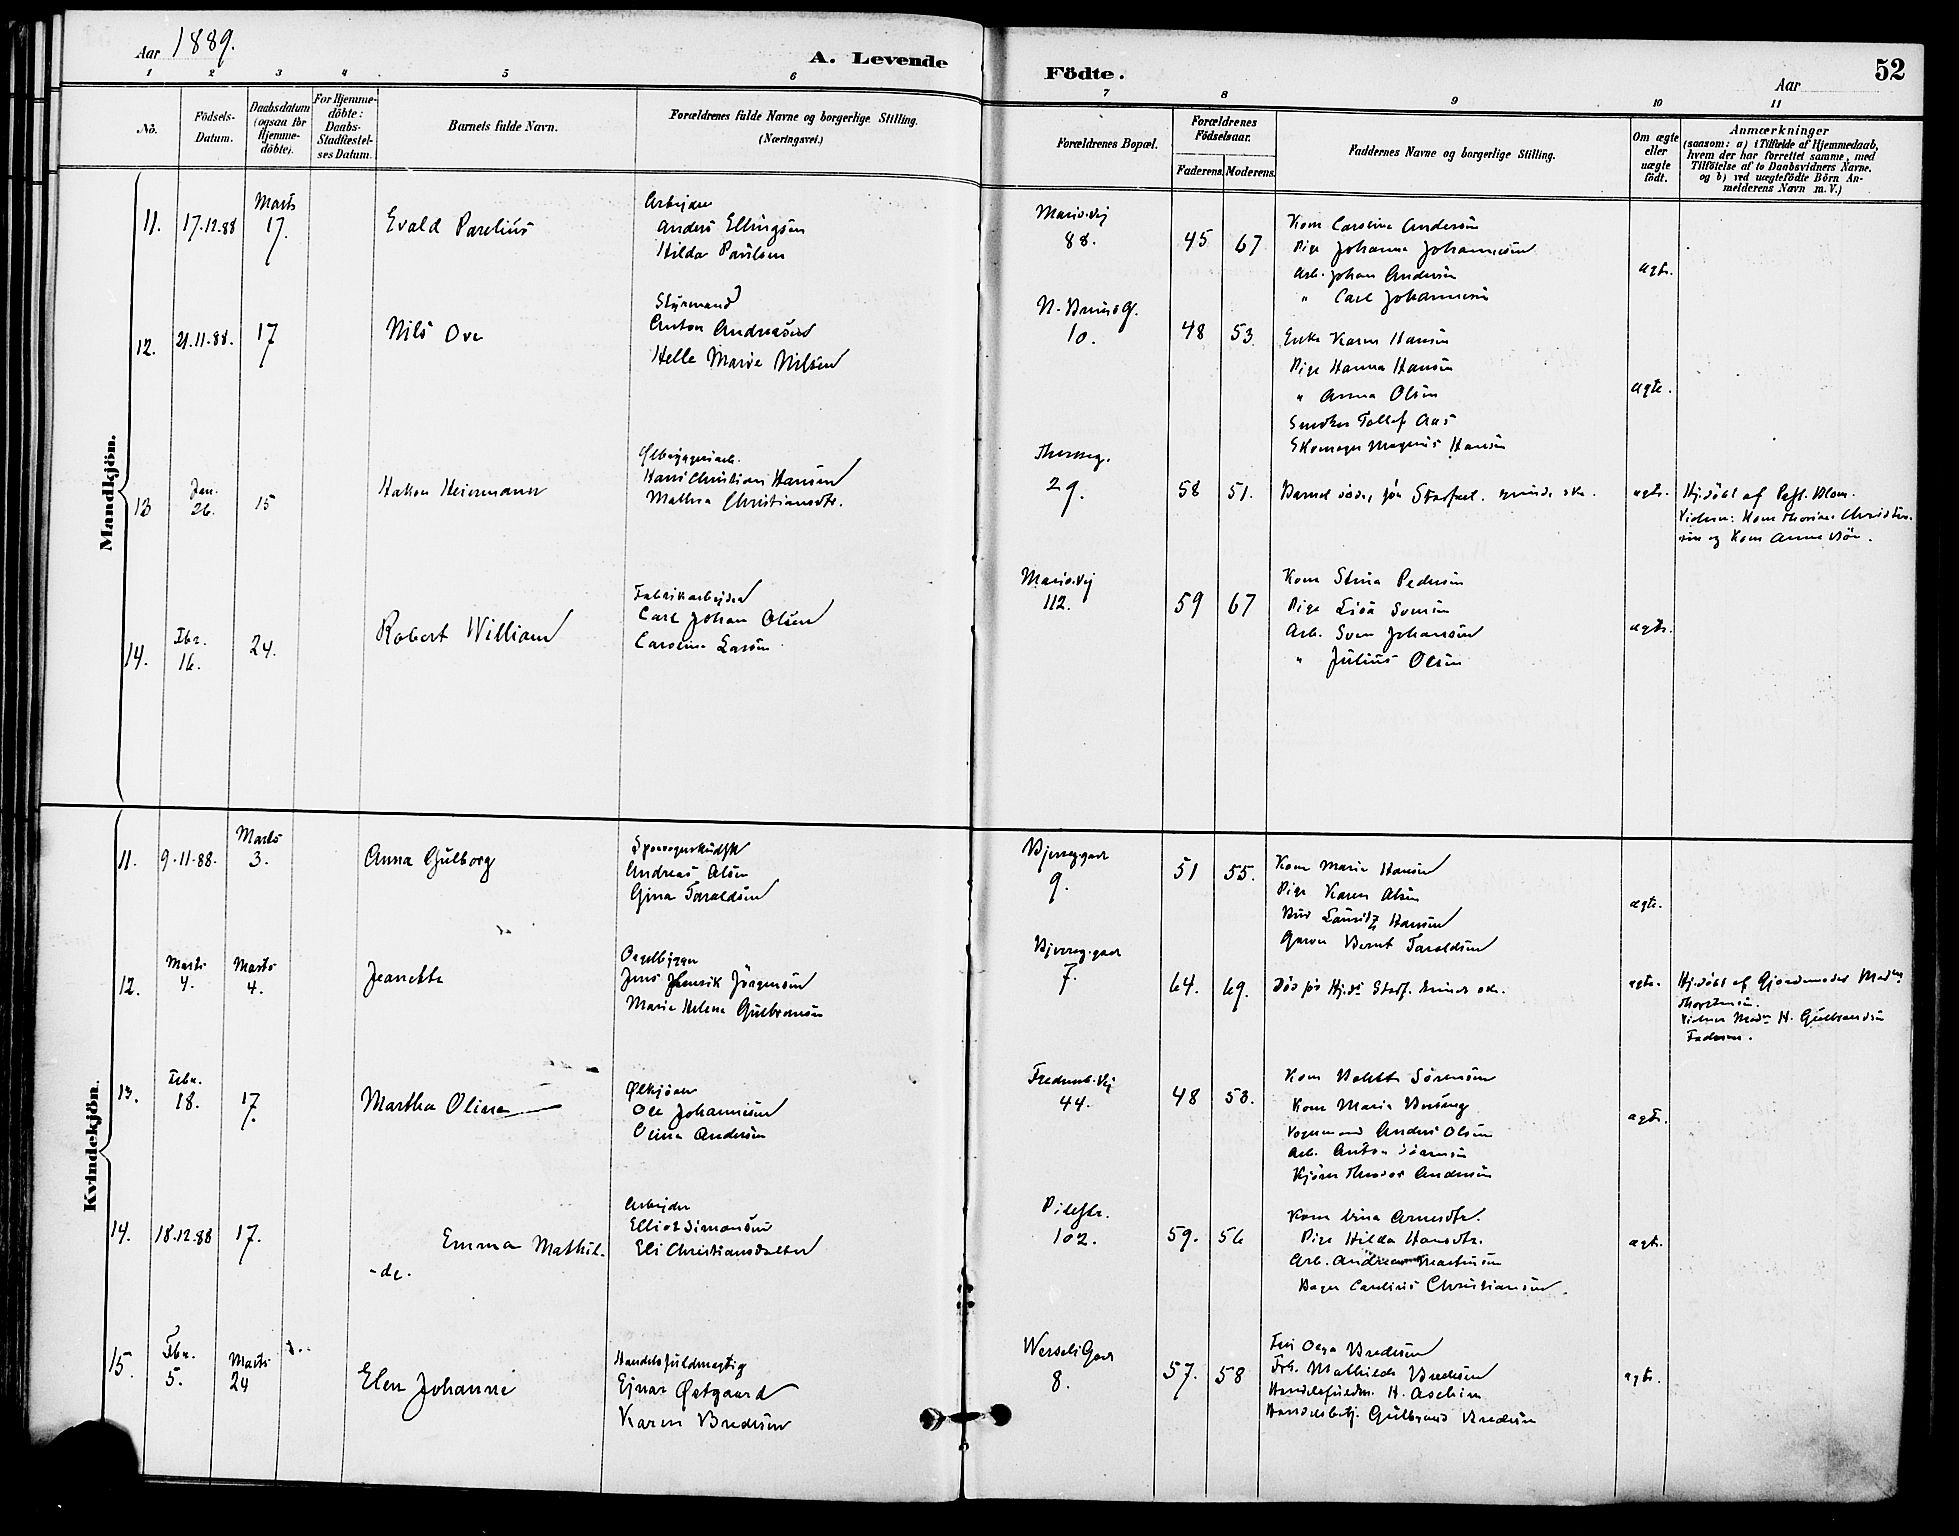 Aar 1889.
A. Levende Födte.
Aar
52
1 2 3 4 5 6 7 8 9 10 11
No.
Födsels-Datum.
Daabsdatum (ogsaa for Hjemme-döbte).
For Hjemme-döbte: Daabs-Stadfæstel-ses Datum.
Barnets fulde Navn.
Forældrenes fulde Navne og borgerlige Stilling. (Næringsvei.)
Forældrenes Bopæl.
Forældrenes Födselsaar.
Faderens. Moderens.
Faddernes Navne og borgerlige Stilling.
Om ægte eller uægte födt.
Anmærkninger
(saasom: a) i Tilfælde af Hjemmedaab,
hvem der har forrettet samme, med
Tilföielse af to Daabsvidners Navne.
og b) ved uægtefödte Börn An-
melderens Navn m. V.)
Mandkjön.
11. 17.12.88 Marts 17. Evald Parelius
Arbejder
Anders Ellingsen
Hilda Paulsen
Mariv.vej
88. 45 67
Kone Caroline Andersen
Pige Johanne Johannesen
Arb. Johan Andersen
" Carl Johannesen
ægte.
12. 21.11.88. 17 Nils Ove
Styrmand
Anton Andreasen
Helle Marie Nilsen
10. 48 53
Enke Karen Hansen
Pige Hanna Hansen
" Anna Olsen
Snedker Tollef Aas
Skomager Magnus Hansen
ægte.
13 Jan. 26. 15 Hakon Heiermann
Ølbryggeriarb.
Hans Christian Hansen
Mathea Christiansdtr.
Thorvaeg.
29. 58 51.
Barnet døde før Stadfæst.
ægte.
Hj.døbt af
Vidner: Kone Thorine Christen-
sen og Kone Anne
14. Fbr. 16. 24. Robert William
Fabrikarbejder
Carl Johan Olsen
Caroline Larsen
Mariv.vej
112. 59 67
Kone Stina Pedersen
Pige Lisa Svensen
Arb. Sven Johansen
" Julius Olsen
ægte.
Kvindekjön.
11. 9.11.88. Marts 3. Anna Gulborg
Sporvognskudsk
Andreas Olsen
Gina Taraldsen
Bjerreggad
9. 51 55.
Kone Marie Hansen
Pige Karen Olsen
Bud Lauritz Hansen
Garver Bernt Taraldsen
ægte.
12. Marts 4. Marts 4. Jeanette
Orgelbygger
Jens Henrik Jörgensen
Marie Helene Gulbransen
Bjerreg.gad
7. 64. 69.
Død før Hj.d. Stadf.
ægte.
Hj.døbt af Gjordemoder Mad.
Thorstensen.
Vidner Mad. H. Gulbrandsen
Faderen.
13. Febr. 18. 17. Martha Oline
Ølkjører
Ole Johannesen
Olina Andersen
Fredensb.vej
44. 48 53.
Kone Bolette Sörensen
Kone Marie
Vognmand Anders Olsen
Arb. Anton Sörensen
Kjører Theodor Andersen
ægte.
14. 18.12.88 17. Emma Mathil-
-de.
Arbejder
Elliot Simonsen
Eli Christiansdatter
Pilestr.
102. 59. 56
Kone Lina Arnesdtr.
Pige Hilda Hansdtr.
Arb. Andreas Martinsen
Bager Carelius Christiansen.
ægte.
15. Fbr. 5. Marts 24 Elen Johanne
Handelsfuldmægtig
Ejnar Østgaard
Karen Bredesen
Wessels Gad
8. 57. 58
Fru Olga Bredesen
Frk. Mathilde Bredesen
Handelsfuldm. H. Aschim
Handelsbetj. Gulbrand Bredesen
ægte.